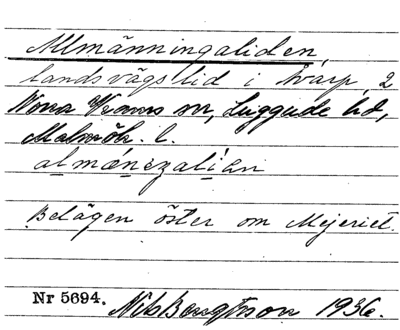 Allmänningaliden,
landsvägslid i Tvärp, 2
Norra Vrams sn, Luggude hd,
Malmöh. l.
almäneŋaliən
Belägen öster om Mejeriet.
Nr 5694. Nils Bengtsson 1936.